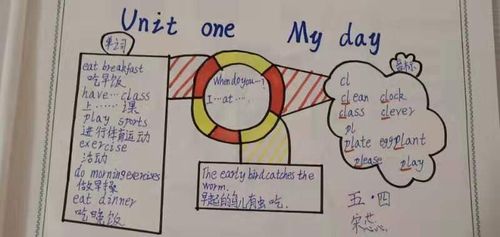 Unit one My day
单词
eat breakfast
吃早饭
have…class
上……课
play sports
进行体育运动
exercise
活动
do morning exercises
做早操
eat dinner
吃晚饭
When do you…?
I…at….
The early bird catches the
worm.
早起的鸟儿有虫吃.
音标
cl
clean clock
class clever
pl
plate eggplant
please play
五·四
宋蕊